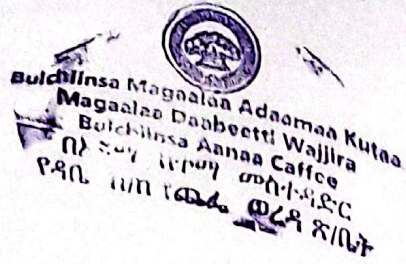 Bulchiinsa Magaalaa Adaamaa Kutaa
Magaalaa Daabeetti Wajjira
Bulchiinsa Aanaa Caffee
በአዳማ ከተማ መስተዳድር
የዳቤ ክ/ከ የጨፌ ወረዳ ጽ/ቤት